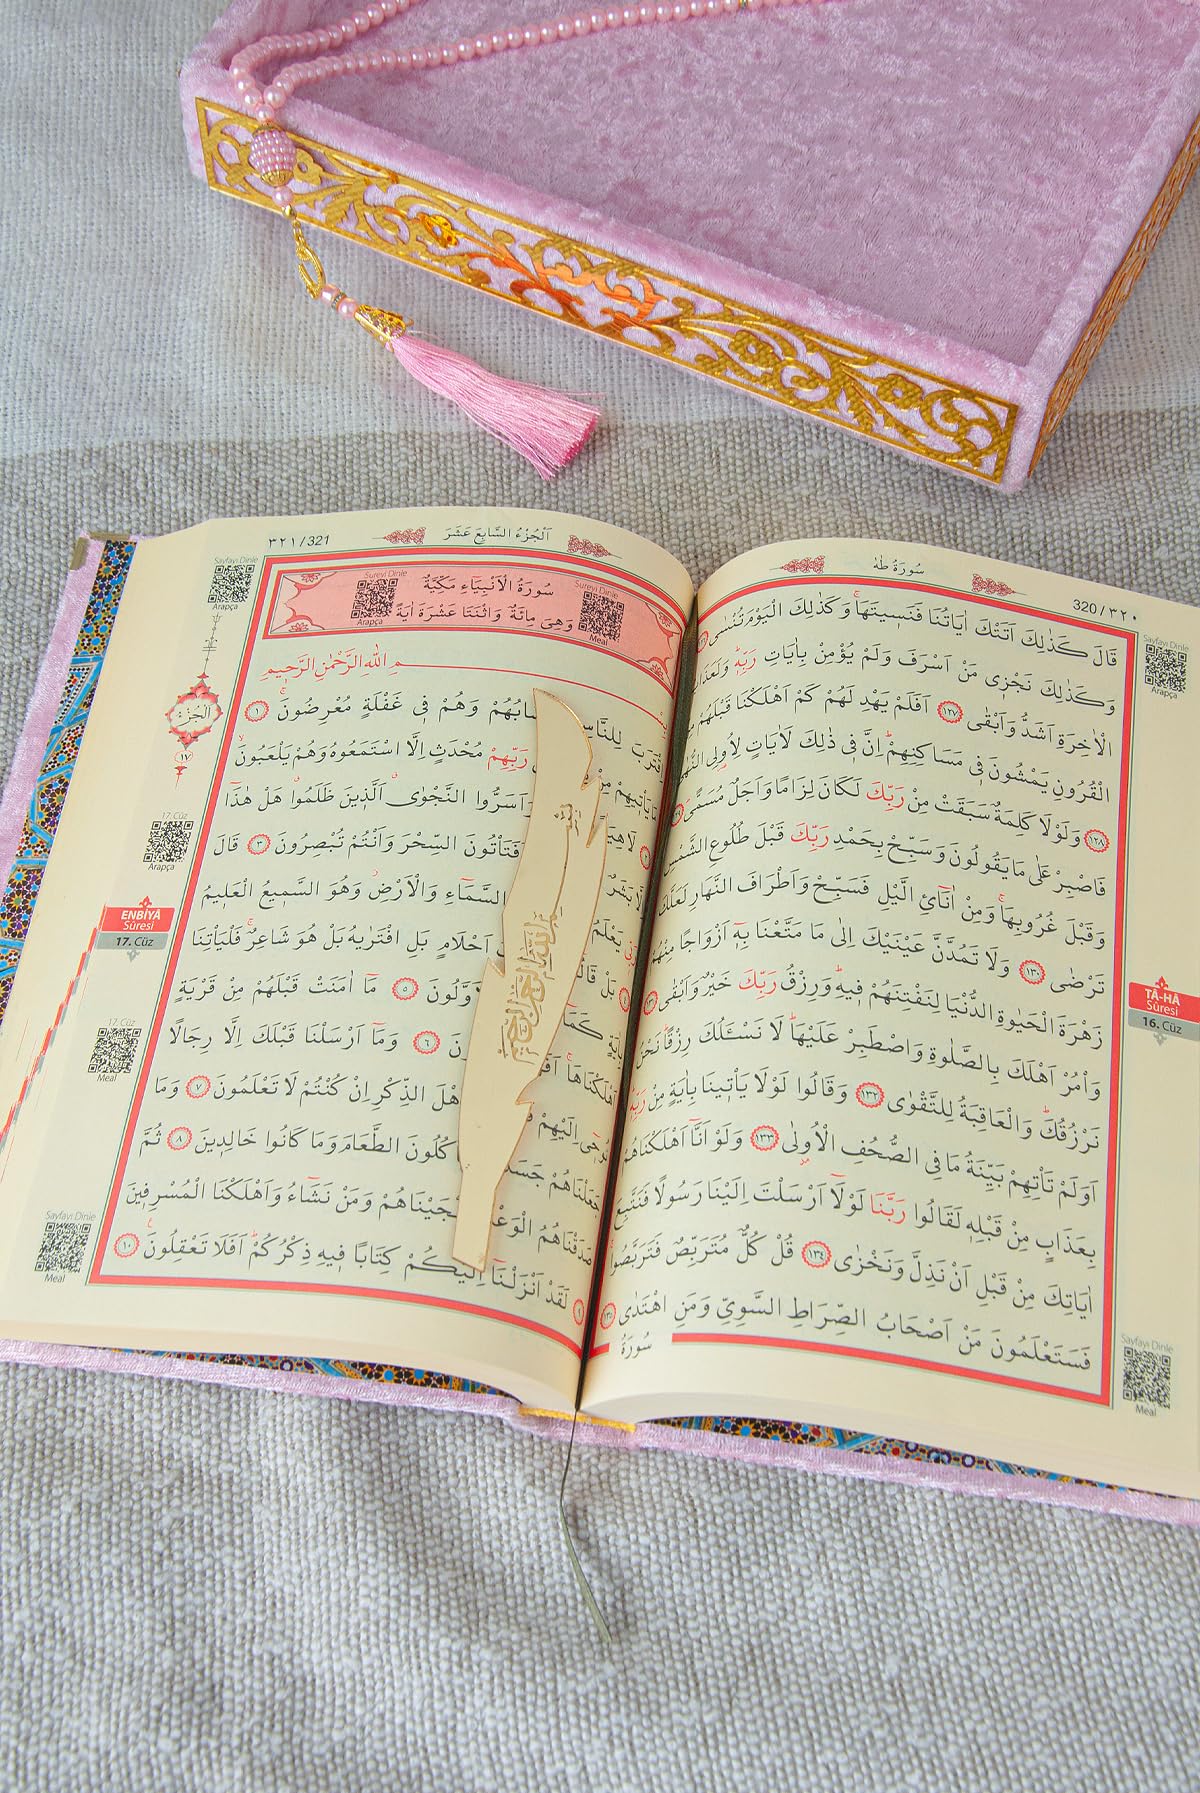 سُورَةُ طٰهٰ
320 / ٣٢٠
قَالَ كَذٰلِكَ اَتَتْكَ اٰيَاتُنَا فَنَسِيتَهَاۚ وَكَذٰلِكَ الْيَوْمَ تُنْسٰى
وَكَذٰلِكَ نَجْزِى مَنْ اَسْرَفَ وَلَمْ يُؤْمِنْ بِاٰيَاتِ رَبِّهٖۜ وَلَعَذَابُ
الْاٰخِرَةِ اَشَدُّ وَاَبْقٰى ١٢٧ اَفَلَمْ يَهْدِ لَهُمْ كَمْ اَهْلَكْنَا قَبْلَهُمْ
الْقُرُونِ يَمْشُونَ فٖى مَسَاكِنِهِمْۜ اِنَّ فٖى ذٰلِكَ لَاٰيَاتٍ لِاُولِى النُّهٰى
١٢٨ وَلَوْلَا كَلِمَةٌ سَبَقَتْ مِنْ رَبِّكَ لَكَانَ لِزَامًا وَاَجَلٌ مُسَمًّى
فَاصْبِرْ عَلٰى مَا يَقُولُونَ وَسَبِّحْ بِحَمْدِ رَبِّكَ قَبْلَ طُلُوعِ الشَّمْسِ
وَقَبْلَ غُرُوبِهَاۚ وَمِنْ اٰنَآئِ الَّيْلِ فَسَبِّحْ وَاَطْرَافَ النَّهَارِ لَعَلَّكَ
تَرْضٰى ١٣٠ وَلَا تَمُدَّنَّ عَيْنَيْكَ اِلٰى مَا مَتَّعْنَا بِهٖٓ اَزْوَاجًا مِنْهُمْ
زَهْرَةَ الْحَيٰوةِ الدُّنْيَا لِنَفْتِنَهُمْ فٖيهِۜ وَرِزْقُ رَبِّكَ خَيْرٌ وَاَبْقٰى
وَاْمُرْ اَهْلَكَ بِالصَّلٰوةِ وَاصْطَبِرْ عَلَيْهَاۜ لَا نَسْـَٔلُكَ رِزْقًاۜ نَحْنُ
نَرْزُقُكَۜ وَالْعَاقِبَةُ لِلتَّقْوٰى ١٣٢ وَقَالُوا لَوْلَا يَاْتٖينَا بِاٰيَةٍ مِنْ رَبِّهٖۜ
اَوَلَمْ تَاْتِهِمْ بَيِّنَةُ مَا فِى الصُّحُفِ الْاُولٰى ١٣٣ وَلَوْ اَنَّٓا اَهْلَكْنَاهُمْ
بِعَذَابٍ مِنْ قَبْلِهٖ لَقَالُوا رَبَّنَا لَوْلَٓا اَرْسَلْتَ اِلَيْنَا رَسُولًا فَنَتَّبِعَ
اٰيَاتِكَ مِنْ قَبْلِ اَنْ نَذِلَّ وَنَخْزٰى ١٣٤ قُلْ كُلٌّ مُتَرَبِّصٌ فَتَرَبَّصُواۚ
فَسَتَعْلَمُونَ مَنْ اَصْحَابُ الصِّرَاطِ السَّوِىِّ وَمَنِ اهْتَدٰى ١٣٥
سُورَةُ
Sayfayı Dinle
Arapça
TÂ-HÂ
Sûresi
16. Cüz
Sayfayı Dinle
Meal
اَلْجُزْءُ السَّابِعَ عَشَرَ
٣٢١ / 321
سُورَةُ الْاَنْبِيَاءِ مَكِّيَّةٌ
وَهِىَ مِائَةٌ وَاثْنَتَا عَشْرَةَ اٰيَةً
Sureyi Dinle
Arapça
Sureyi Dinle
Meal
ـمِ اللّٰهِ الرَّحْمٰنِ الرَّحٖيمِ
اِقْتَرَبَ لِلنَّاسِ حِسَابُهُمْ وَهُمْ فٖى غَفْلَةٍ مُعْرِضُونَۚ ١
مَا يَاْتٖيهِمْ مِنْ رَبِّهِمْ مُحْدَثٍ اِلَّا اسْتَمَعُوهُ وَهُمْ يَلْعَبُونَۙ
٢ لَاهِيَةً وَاَسَرُّوا النَّجْوٰىۗ اَلَّذٖينَ ظَلَمُواۗ هَلْ هٰذَٓا
اِلَّا بَشَرٌ فَتَاْتُونَ السِّحْرَ وَاَنْتُمْ تُبْصِرُونَ ٣ قَالَ
رَبّٖى يَعْلَمُ السَّمَٓاءِ وَالْاَرْضِۘ وَهُوَ السَّمٖيعُ الْعَلٖيمُ
٤ بَلْ قَالُٓوا اَحْلَامٍ بَلِ افْتَرٰيهُ بَلْ هُوَ شَاعِرٌۚ فَلْيَاْتِنَا
بِاٰيَةٍ كَمَٓا الْاَوَّلُونَ ٥ مَٓا اٰمَنَتْ قَبْلَهُمْ مِنْ قَرْيَةٍ
اَهْلَكْنَاهَاۚ ٦ وَمَٓا اَرْسَلْنَا قَبْلَكَ اِلَّا رِجَالًا
نُوحٖٓى اِلَيْهِمْ اَهْلَ الذِّكْرِ اِنْ كُنْتُمْ لَا تَعْلَمُونَ ٧ وَمَا
جَعَلْنَاهُمْ جَسَدًا يَاْكُلُونَ الطَّعَامَ وَمَا كَانُوا خَالِدٖينَ ٨ ثُمَّ
صَدَقْنَاهُمُ الْوَعْدَ فَاَنْجَيْنَاهُمْ وَمَنْ نَشَٓاءُ وَاَهْلَكْنَا الْمُسْرِفٖينَ
٩ لَقَدْ اَنْزَلْنَٓا اِلَيْكُمْ كِتَابًا فٖيهِ ذِكْرُكُمْۜ اَفَلَا تَعْقِلُونَ ١٠
بِسْمِ اللّٰهِ الرَّحْمٰنِ الرَّحِيمِ
Sayfayı Dinle
Arapça
اَلْجُزْءُ
١٧
17. Cüz
Arapça
ENBİYÂ
Sûresi
17. Cüz
17. Cüz
Meal
Sayfayı Dinle
Meal